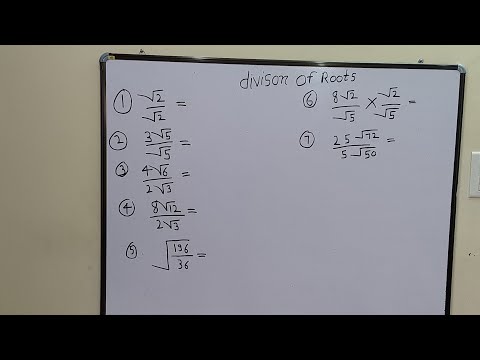 divison of Roots
① √2/√2 =
② 3√5/√5 =
③ 4√6/2√3 =
④ 8√12/2√3 =
⑤ √(196/36) =
⑥ 8√2/√5 × √2/√5 =
⑦ 25√72/5√50 =